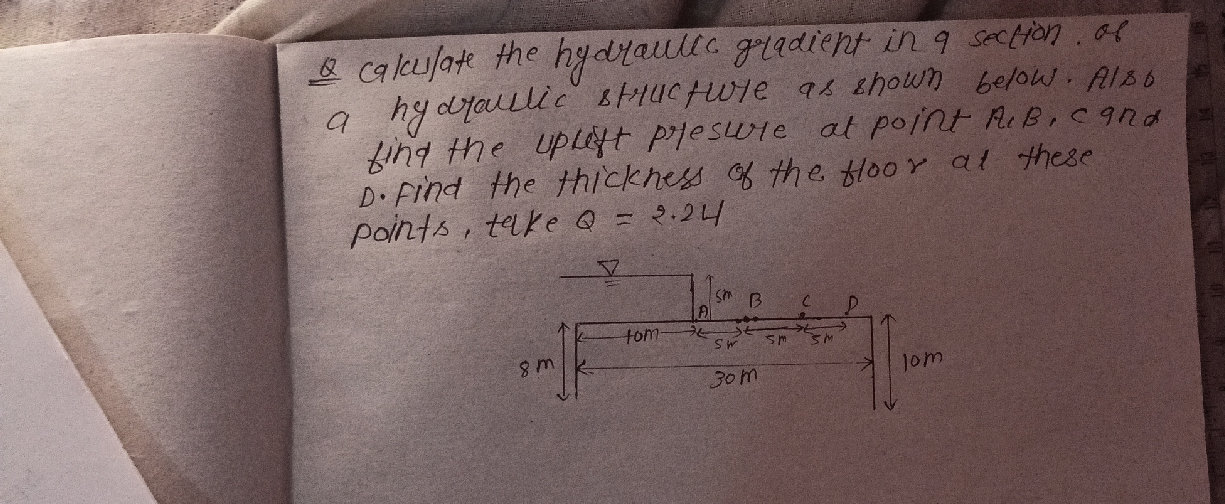 Q calculate the hydraulic gradient in a section of
a hydraulic structure as shown below. Also
find the uplift presure at point A, B, C and
D. Find the thickness of the floor at these
points, take Q = 2.24
5m
A B C D
10m 5m 5m 5m
8m 30m 10m